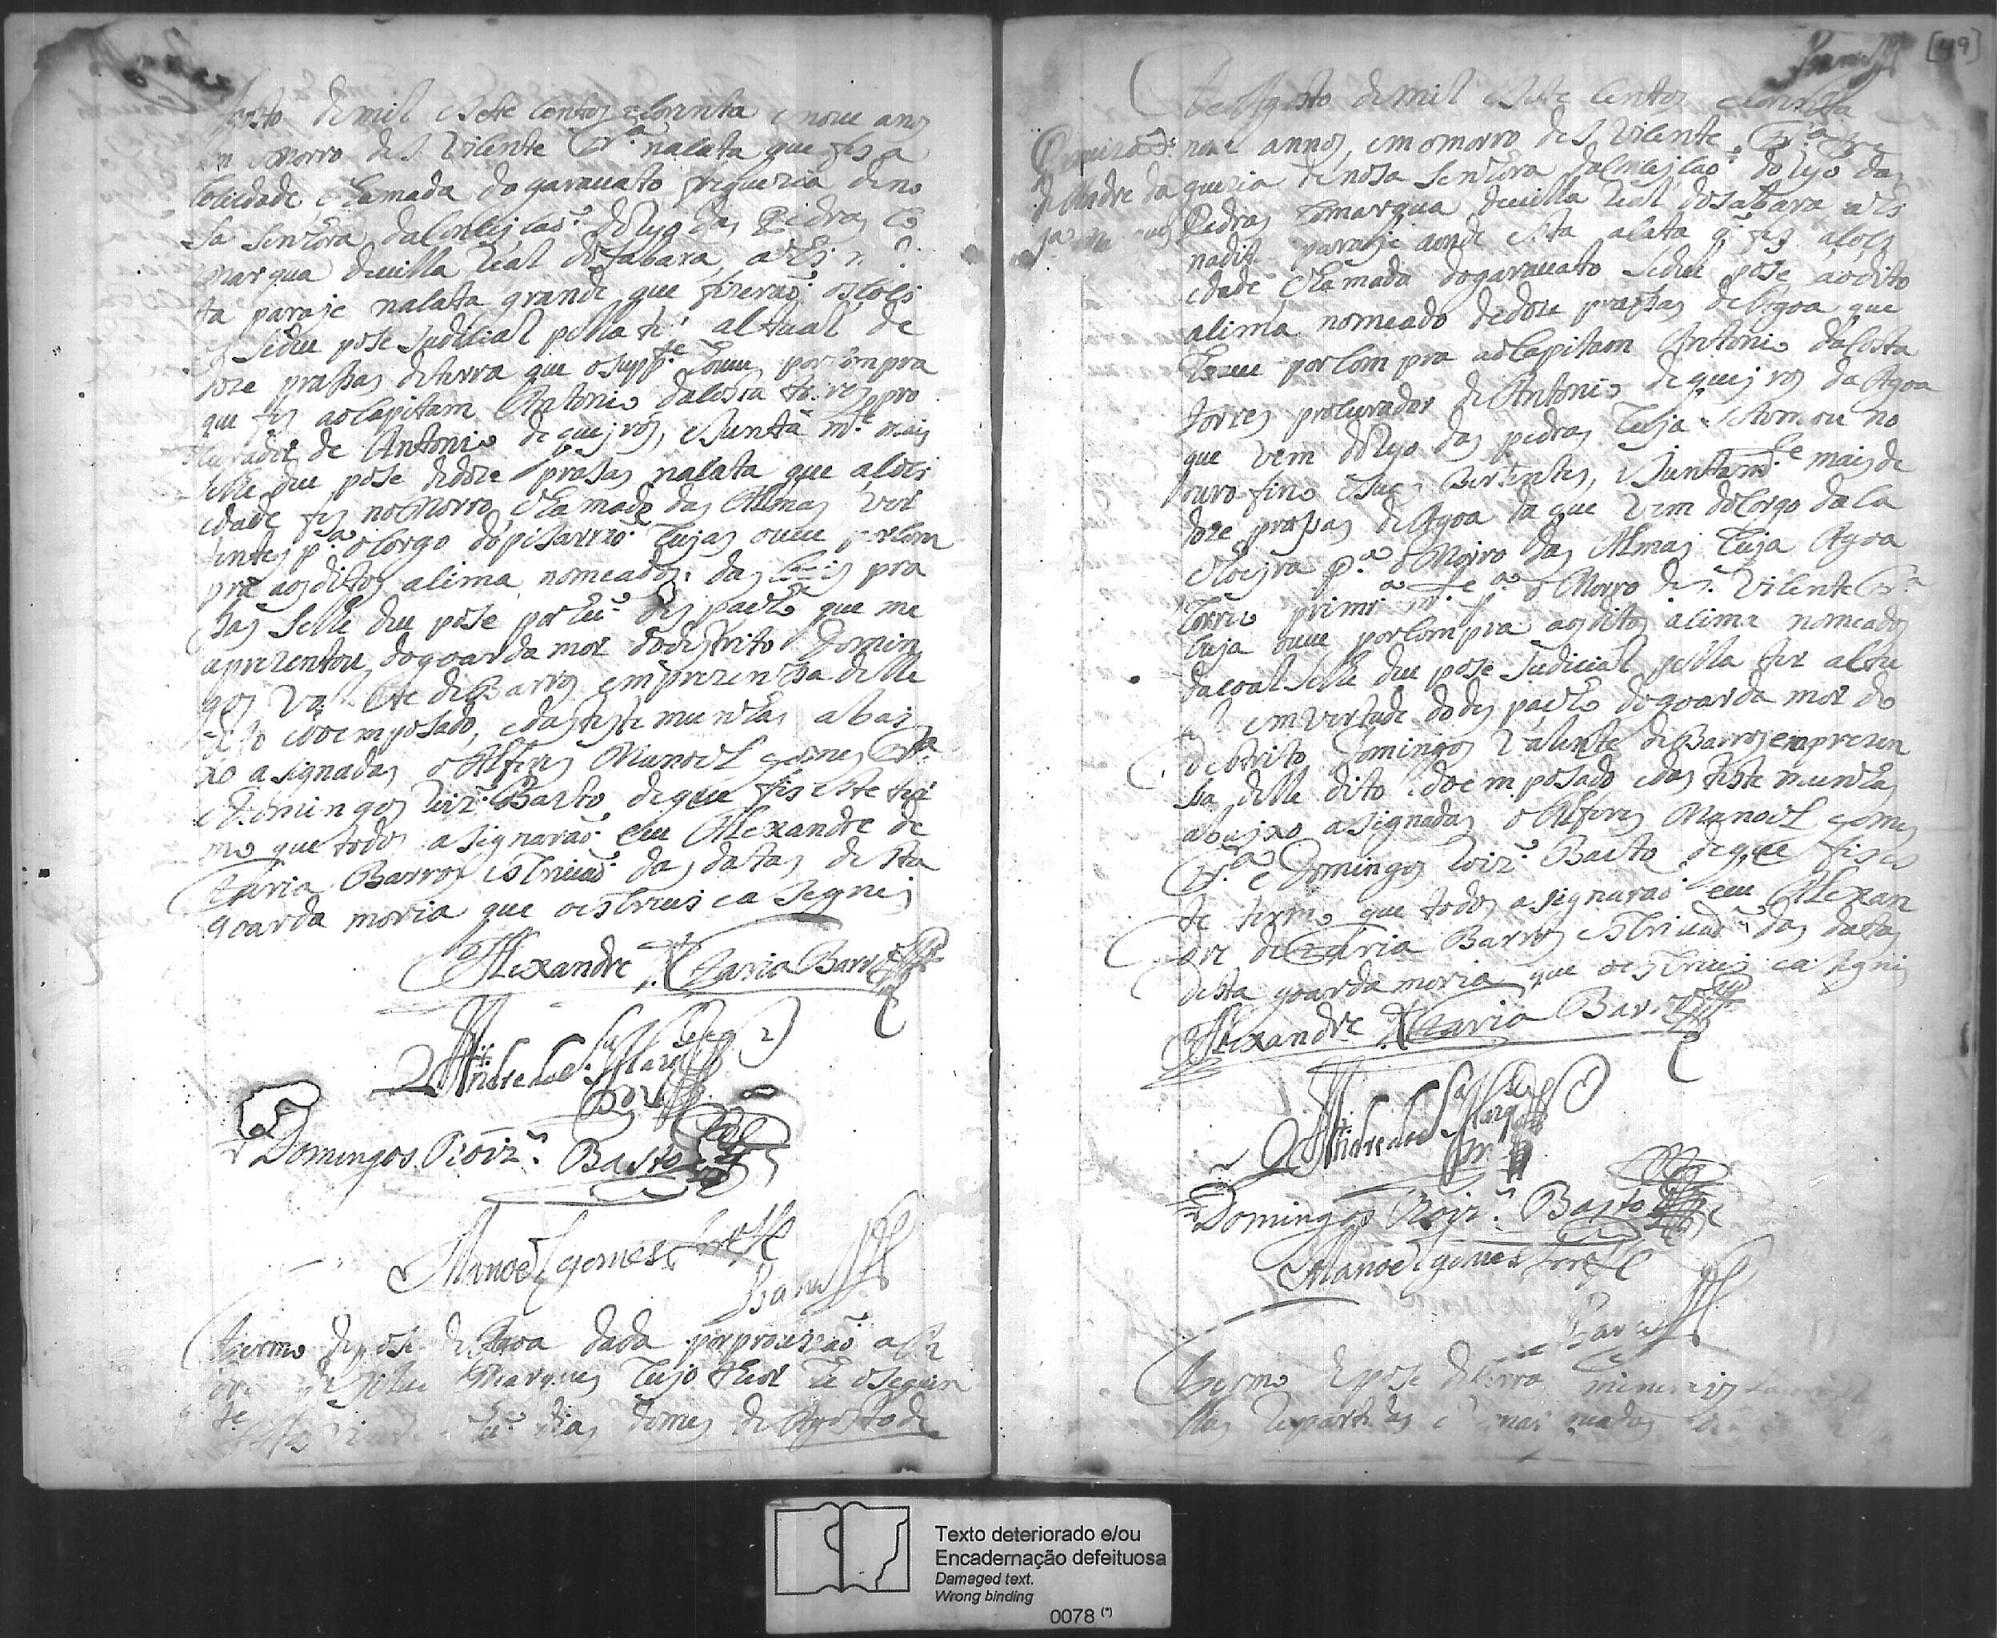 gosto de mil e sete centos e corenta e nove anos
em o Morro de S. Vicente Frª. na cata que fes a
sociedade chamada do garavato fregueria de no
sa senhora da Conseicaõ do Ryo das Pedras Co
marqua de villa Real do Sabara
ta paraje na cata grande que fizeraõ os soci
se deu pose Judicial pella
doze prassas de terra que o suppte. houve por compra
que fes ao Capitam Antonio da Costa torres pro
curador de Antonio de queiros, e Junta mte. mais
selhe deu pose de doze prassas na cata que a soci
edade fes no Morro chamado das Almas ver
tentes pª. o Corgo do pisarraõ Cujas ouve por com
pra aos ditos asima nomeados. das pra
sas selhe deu pose por hũ despacho que me
aprezentou do goarda mor do destrito Domin
gos Valente de Barros em prezensa delle
dito e o emposado, e das testemunhas abai
xo asignadas o Alferes Manoel gomes Frª.
e Domingos Roiz. Basto de que fis este ter
mo que todos asignaraõ eu Alexandre de
Faria Barros escrivaõ das datas desta
goarda moria que o escrevi e asignei
Alexandre de Faria Barros
Andre da Sª. Marques
Domingos Roiz. Basto
Manoel gomes
termo de pose de Agoa dada por provizaõ a An
dre da Silva Marques Cujo theor he o seguin
te
dias do mes de Agosto de
[49]
de Agosto de mil e sete centos e corenta
nove annos, em o morro de S. Vicente Frª. fre
gueria de nosa senhora da Conseicaõ do Ryo das
Pedras Comarqua de villa Real do Sabara
nadita paraje aonde esta a cata q. fes a soci
edade chamada do garavato se deu pose ao dito
asima nomeado de doze prassas de Agoa que
houve por compra ao Capitam Antonio da Costa
torres procurador de Antonio de queiros da Agoa
que vem do Ryo das pedras Cuja se tomou no
ouro fino e suas vertentes, e Juntamte. mais de
doze prassas de Agoa da que vem do Corgo da Ca
choeyra pª. o Morro das Almas Cuja Agoa
Correo primrª. mte. pª. o Morro de S. Vicente Frª.
Cuja ouve por compra aos ditos asima nomeados
da coal selhe deu pose Judicial pella
em vertude do despacho do goarda mor do
destrito Domingos Valente de Barros em prezen
sa delle dito e do emposado e das testemunhas
abayxo asignadas o Alferes Manoel gomes
Frª. e Domingos Roiz. Basto de que fis es
te termo que todos asignaraõ eu Alexan
dre de Faria Barros escrivaõ das datas
desta goarda moria que o escrevi e asignei
Alexandre de Faria Barros
Andre da Sª. Marques
Domingos Roiz. Basto
Manoel gomes
Termo de pose de terra minerais
Texto deteriorado e/ou
Encadernação defeituosa
Damaged text.
Wrong binding
0078 (*)